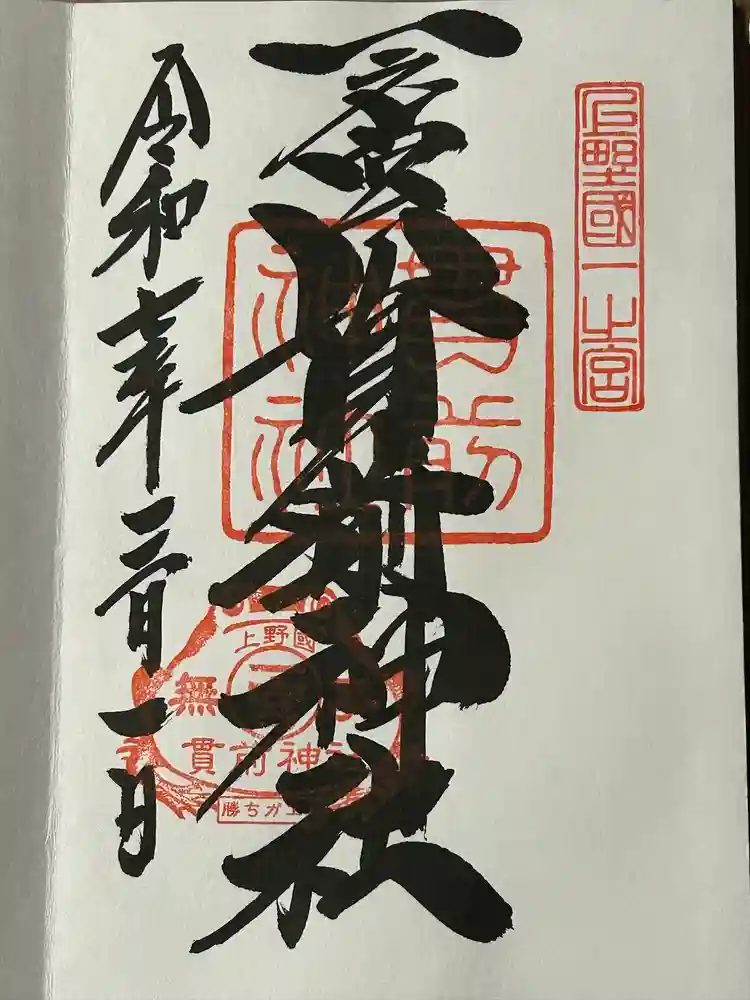 上野國一之宮
一之宮貫前神社
貫前
神社
上野國
無
貫前神社
勝ちガエル
令和七年三月一日